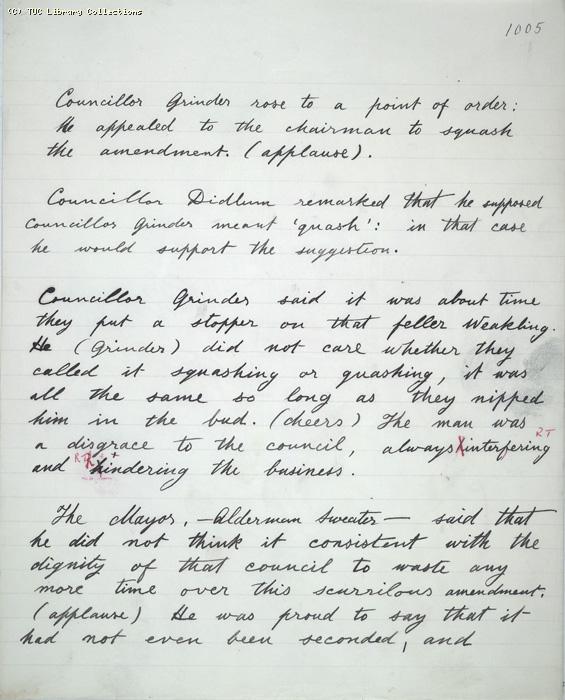 (C) TUC Library Collections
1005
Councillor Grinder rose to a point of order:
He appealed to the chairman to squash
the amendment. (applause).
Councillor Didlum remarked that he supposed
Councillor Grinder meant 'quash': in that case
he would support the suggestion.
Councillor Grinder said it was about time
they put a stopper on that feller Weakling.
He (Grinder) did not care whether they
called it squashing or quashing, it was
all the same so long as they nipped
him in the bud. (cheers) The man was
a disgrace to the council, always interfering
RT
RT
and hindering the business.
The Mayor, —Alderman Sweater— said that
he did not think it consistent with the
dignity of that council to waste any
more time over this scurrilous amendment.
(applause) He was proud to say that it
had not even been seconded, and